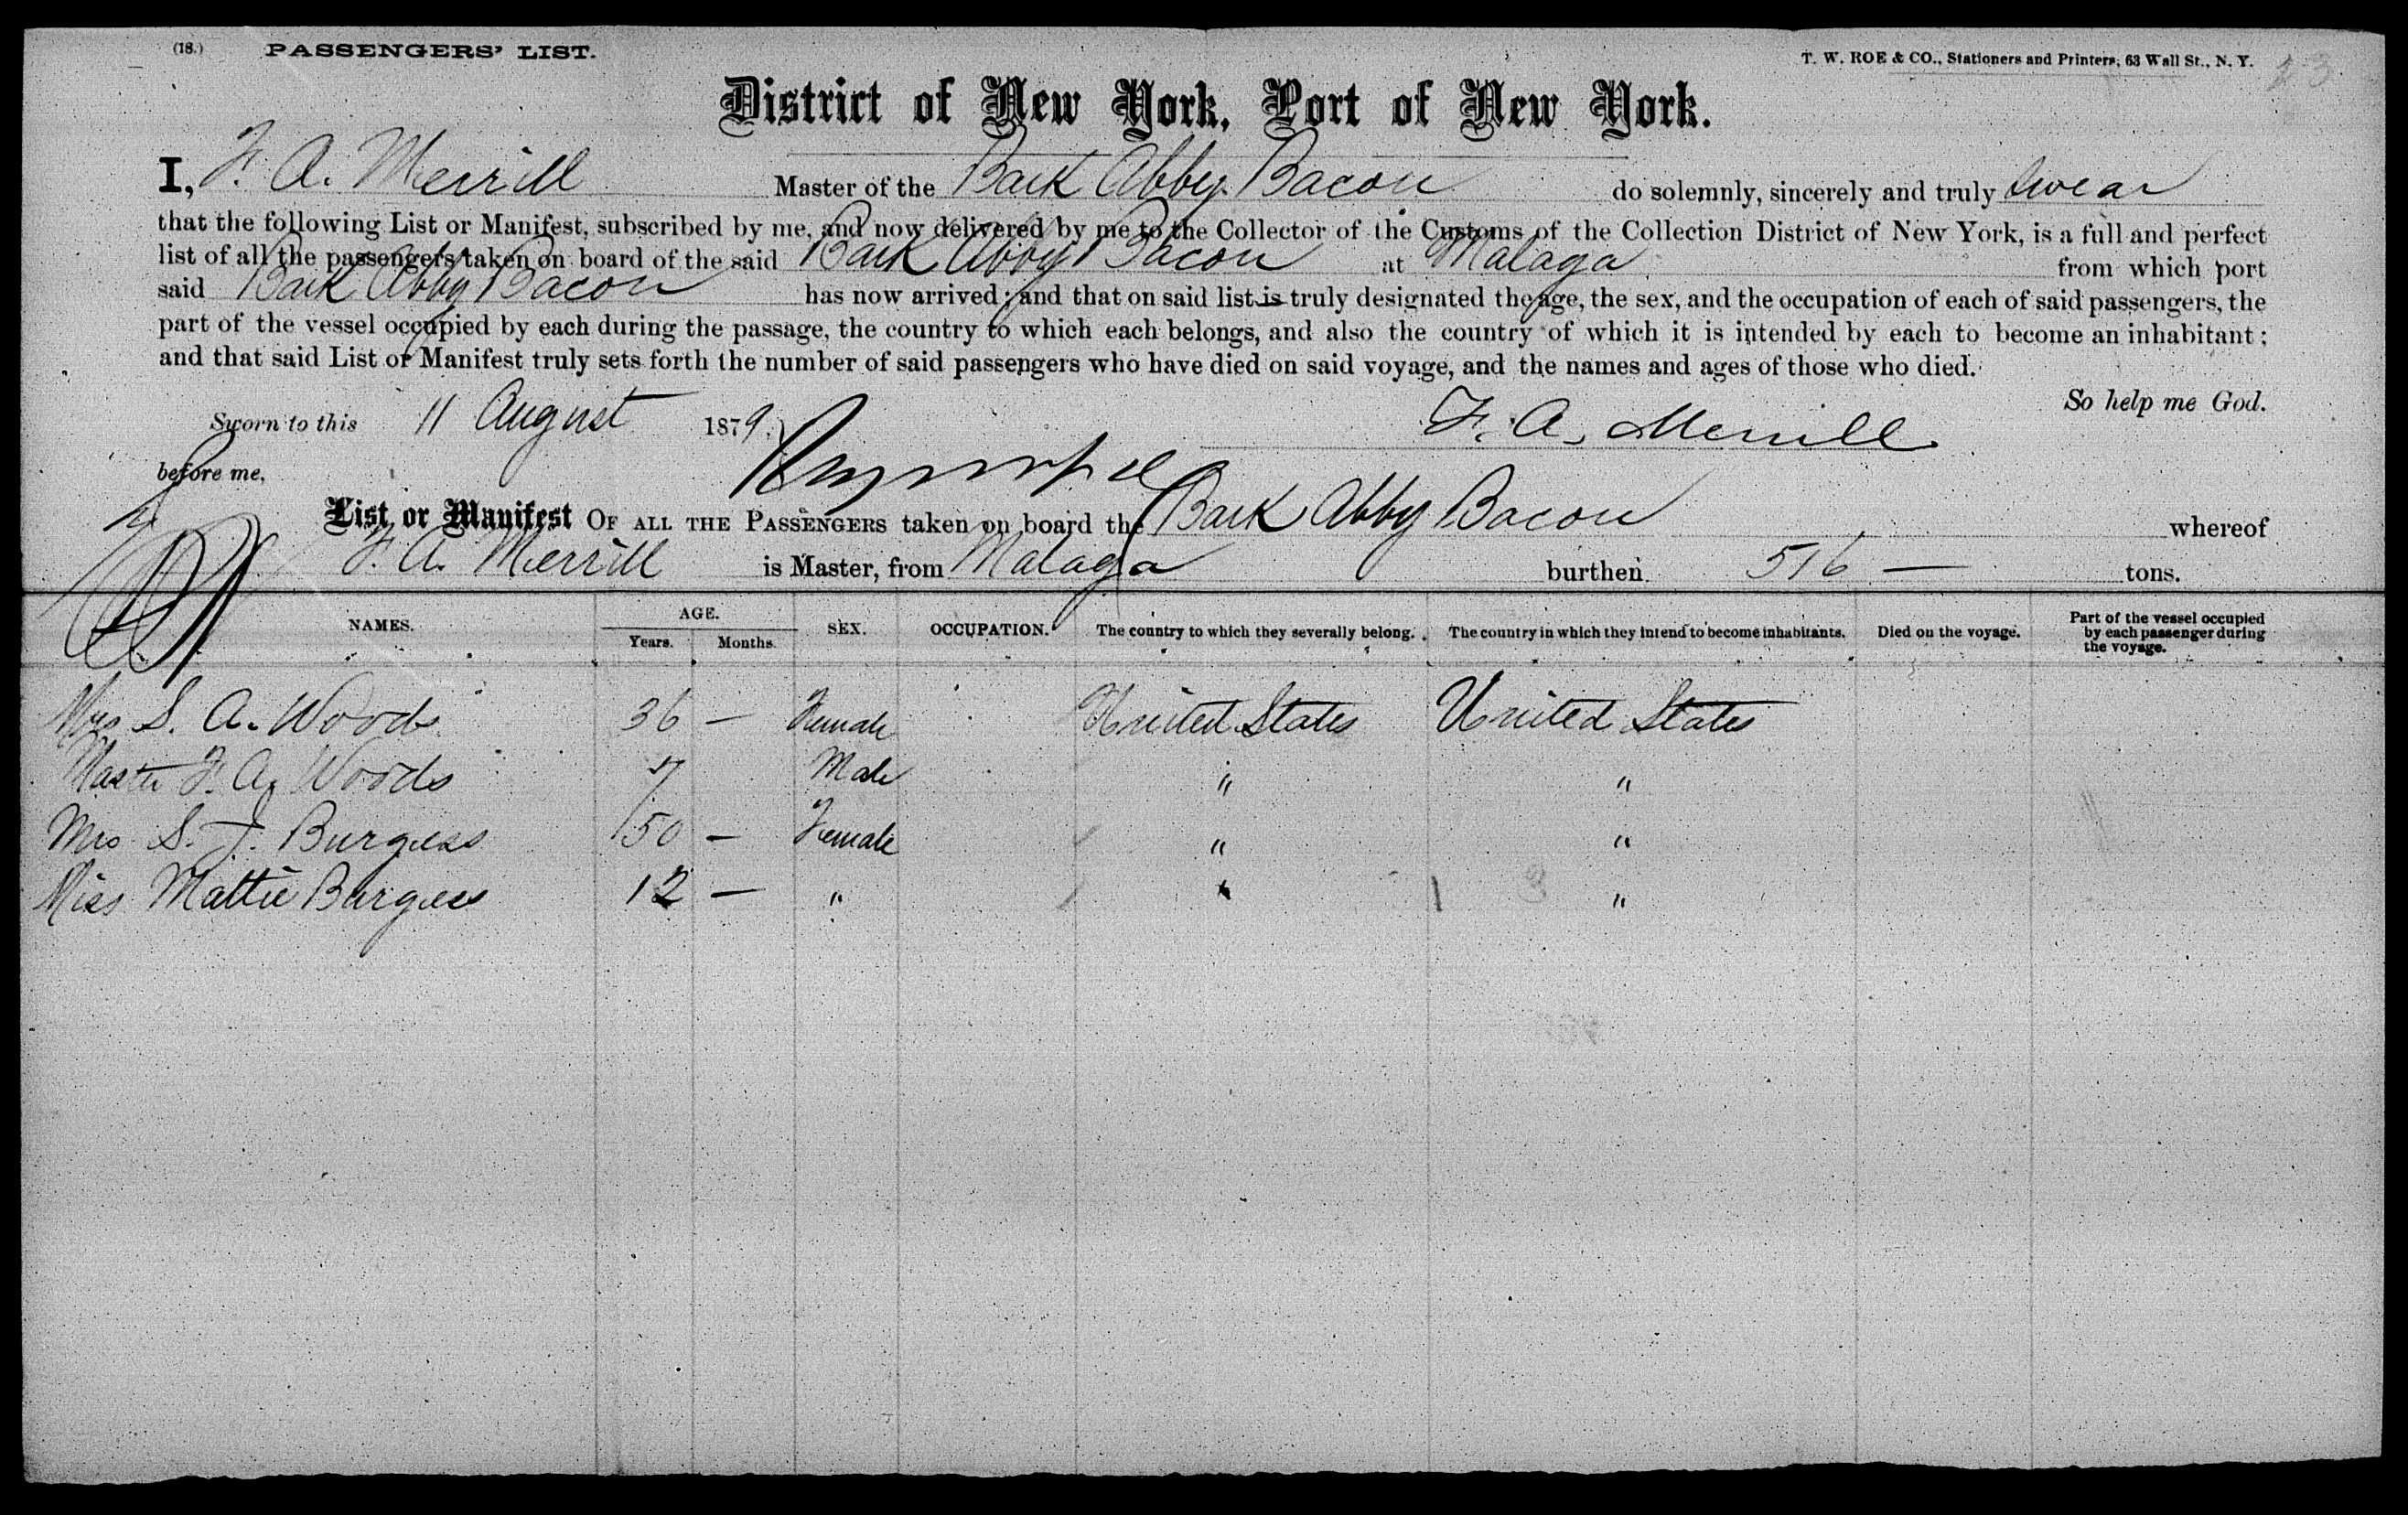 (18.) PASSENGERS' LIST. T. W. ROE & CO., Stationers and Printers, 63 Wall St., N. Y.
District of New York, Port of New York.
I, F. A. Merrill Master of the Bark Abby Bacon do solemnly, sincerely and truly swear
that the following List or Manifest, subscribed by me, and now delivered by me to the Collector of the Customs of the Collection District of New York, is a full and perfect
list of all the passengers taken on board of the said Bark Abby Bacon at Malaga from which port
said Bark Abby Bacon has now arrived; and that on said list is truly designated the age, the sex, and the occupation of each of said passengers, the
part of the vessel occupied by each during the passage, the country to which each belongs, and also the country of which it is intended by each to become an inhabitant;
and that said List or Manifest truly sets forth the number of said passengers who have died on said voyage, and the names and ages of those who died.
So help me God.
Sworn to this 11 August 1879. F. A. Merrill
before me,
List or Manifest OF ALL THE PASSENGERS taken on board the Bark Abby Bacon whereof
F. A. Merrill is Master, from Malaga burthen 516 — tons.
NAMES. AGE. Years. Months. SEX. OCCUPATION. The country to which they severally belong. The country in which they intend to become inhabitants. Died on the voyage. Part of the vessel occupied by each passenger during the voyage.
Mrs S. A. Woods 36 — Female United States United States
Master F. A. Woods 7 Male " "
Mrs S. J. Burgess 50 — Female " "
Miss Mattie Burgess 12 — " " "